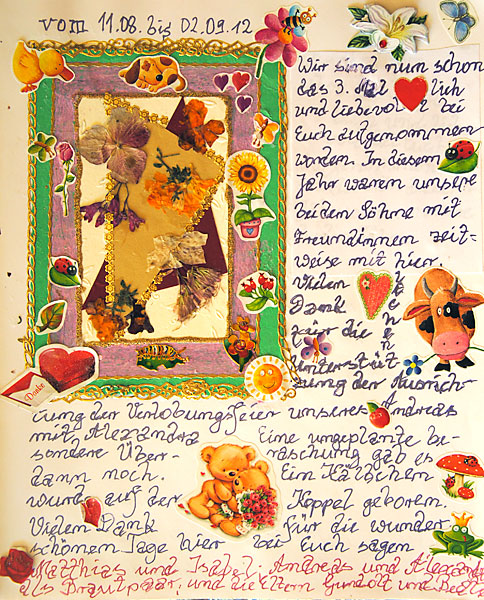 vom 11.08. bis 02.09.12
Wir sind nun schon
das 3. Mal lich
und liebevoll bei
Euch aufgenommen
worden. In diesem
Jahr waren unsere
beiden Söhne mit
Freundinnen zeit-
weise mit hier.
Vielen
Dank
für die
Unterstüt
zung der Ausrich-
tung der Verlobungsfeier unseres Andreas
mit Alexandra Eine ungeplante be-
sondere Über- raschung gab es
dann noch. Ein Kälbchen
wurde auf der Koppel geboren.
Vielen Dank für die wunder
schönen Tage hier bei Euch sagen
Matthias und Isabel, Andreas und
als Brautpaar, und die Eltern Gundolf und
Danke